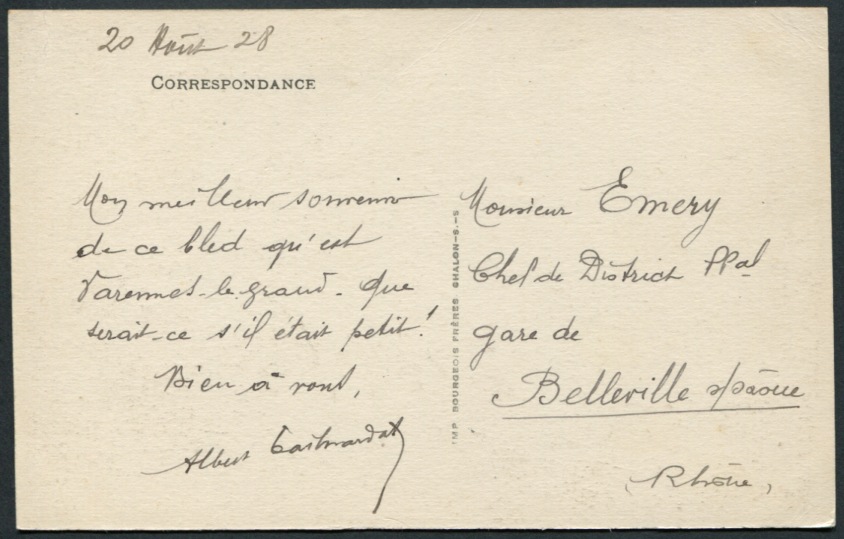 20 Août 28
CORRESPONDANCE
Mon meilleur souvenir
de ce bled qu'est
Varennes-le-grand. Que
serait-ce s'il était petit!
Bien à vous,
Albert
IMP. BOURGEOIS FRÈRES CHALON-S.-S
Monsieur Emery
Chef de District Ppal
gare de
Belleville s/Saône
(Rhône)